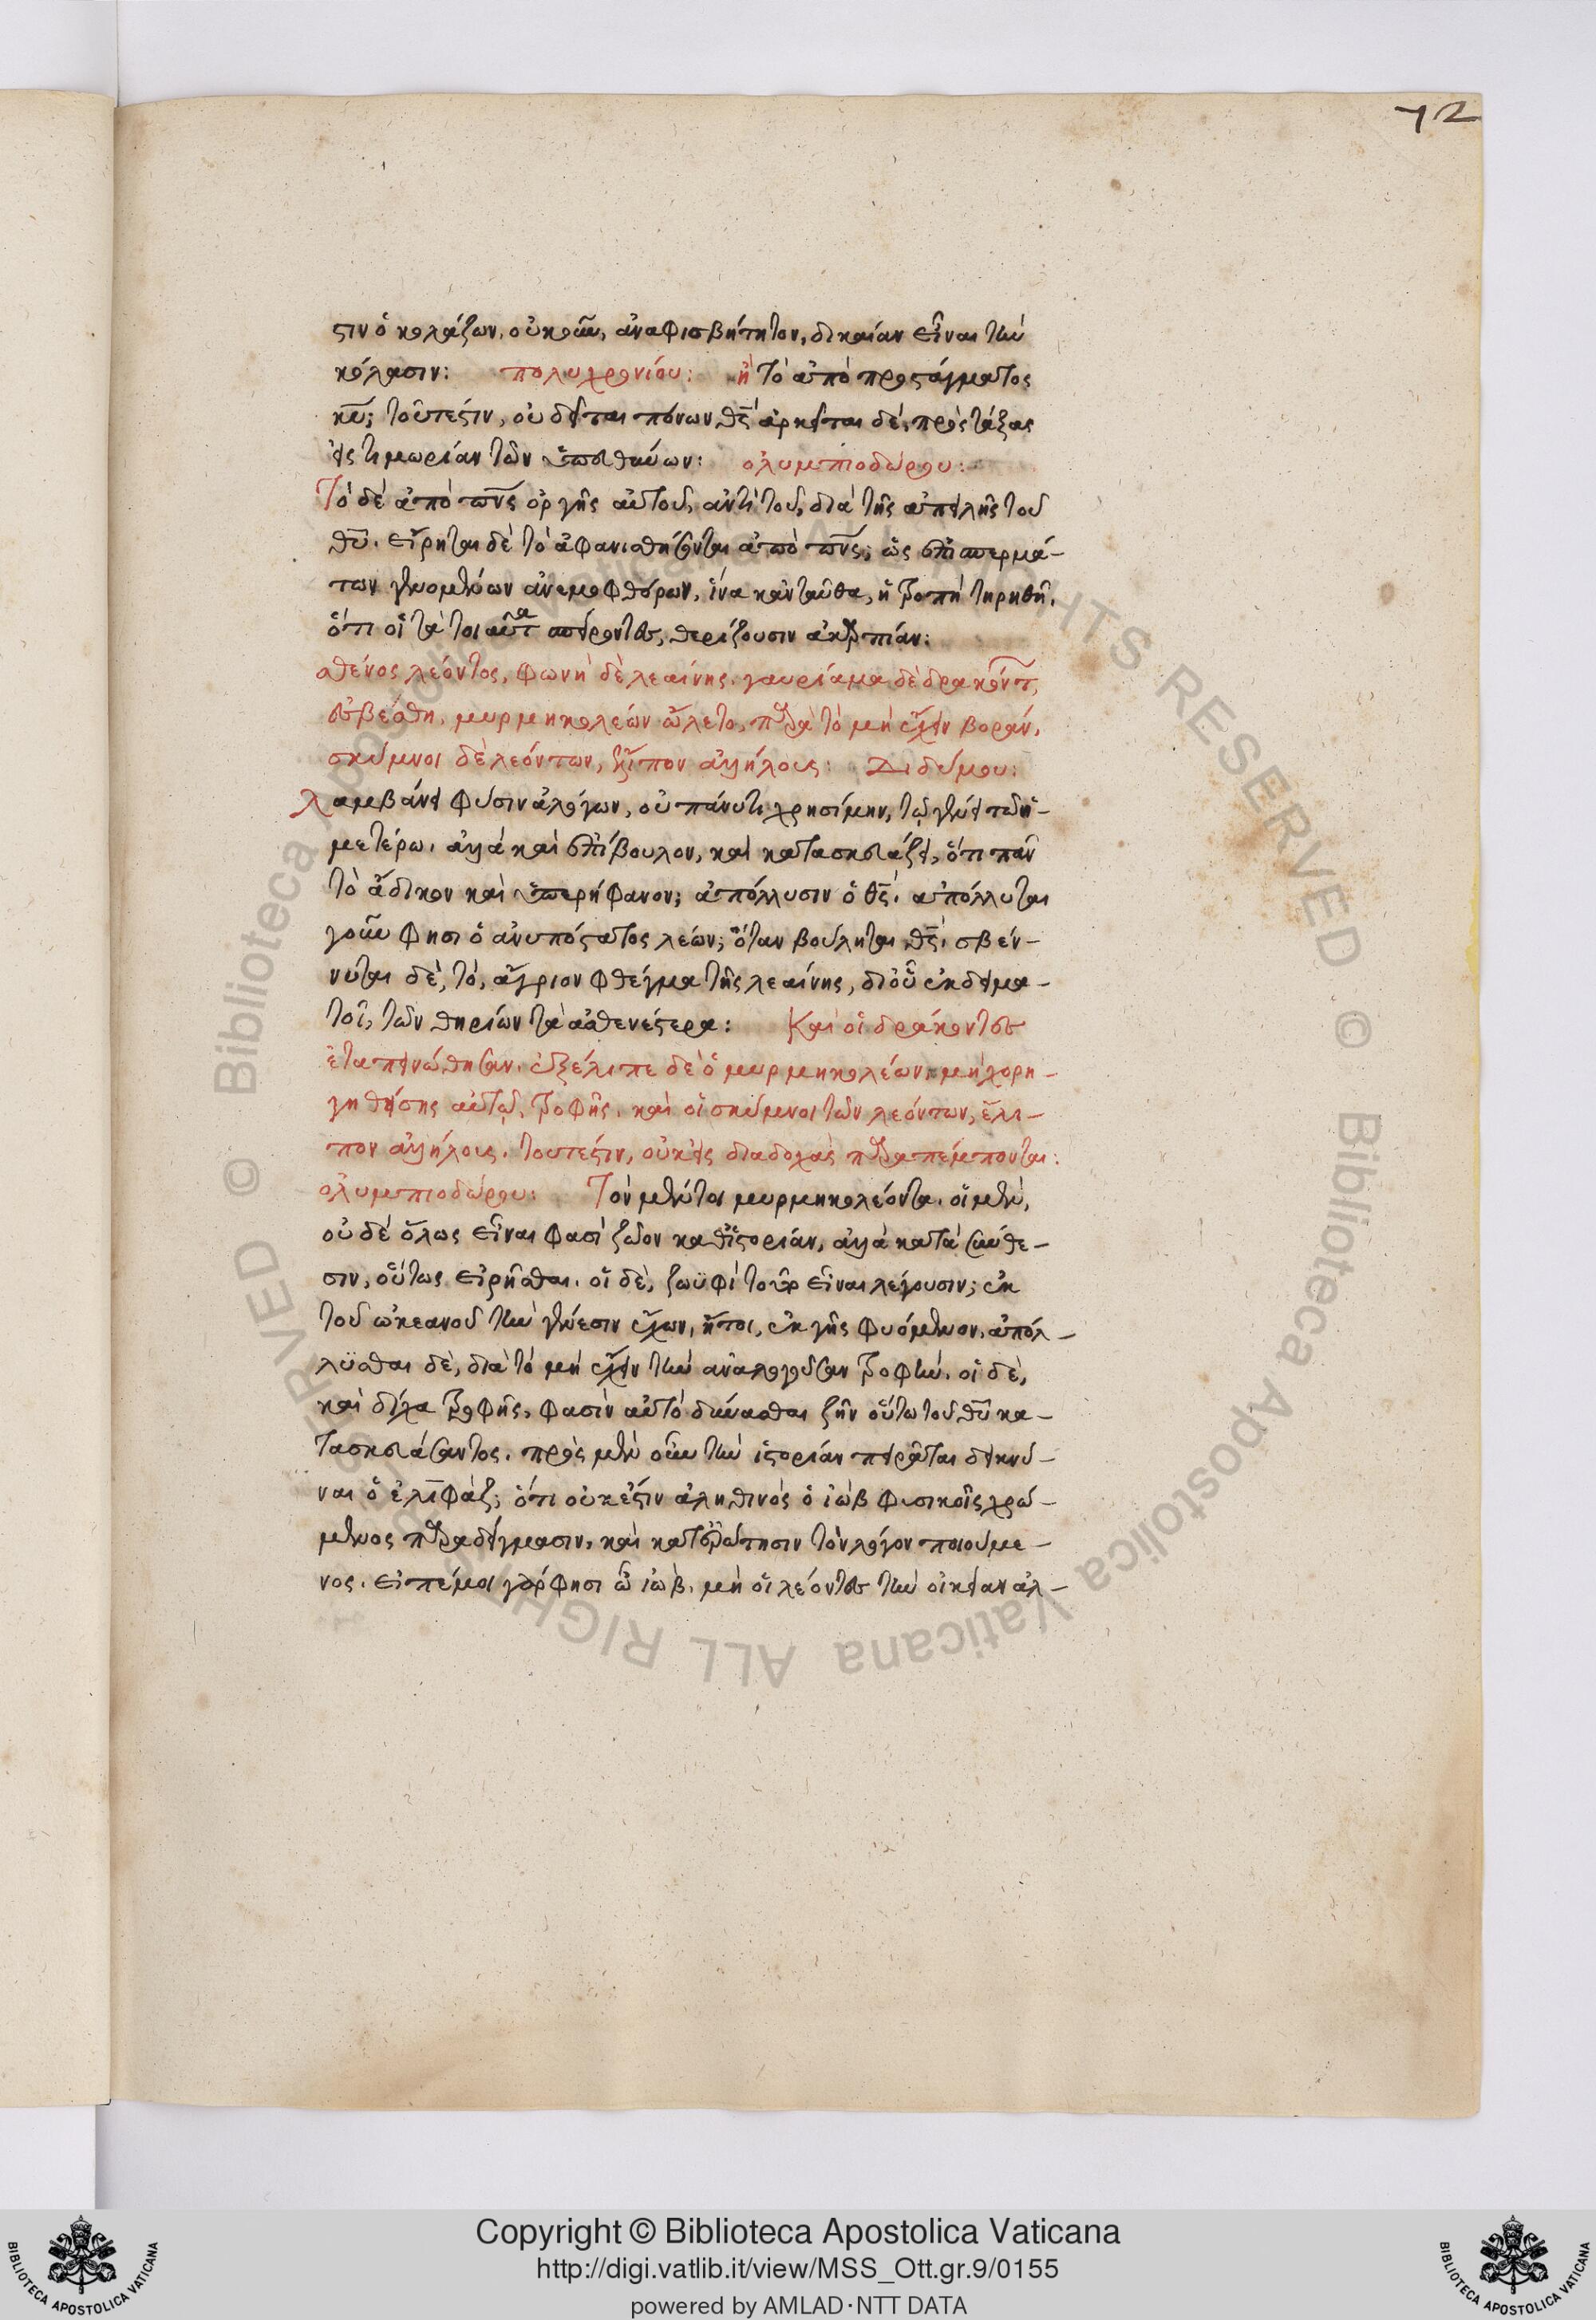 72
στιν ὁ κολάζων, οὐκοῦν, ἀναφισβήτητον, δικαίαν εἶναι τὴν
κόλασιν: πολυχρονίου: ἢ τὸ ἀπὸ προστάγματος
κυ; τοῦτεστιν, οὐ δεῖται πόνων θς ἀρκεῖται δὲ, προστάξας
εἰς τιμωρίαν τῶν ὑπευθύνων: ολυμπιοδώρου:
Τὸ δὲ ἀπὸ πνς ὀργῆς αὐτοῦ, ἀντὶ τοῦ, διὰ τῆς ἀπειλῆς τοῦ
θυ. εἴρηται δὲ τὸ ἀφανισθήσονται ἀπὸ πνς; ὡς ἐπὶ σπερμά-
των γινομένων ἀνεμοφθόρων, ἵνα κἀνταῦθα, ἡ τροπὴ τηρηθῆ,
ὅτι οἱ τὰ τοιαῦτα σπείροντες, θερίζουσιν ἀκαρπίαν:
σθένος λέοντος, φωνὴ δὲ λεαίνης, γαυρίαμα δὲ δρακόντ,
ἐσβέσθη, μυρμηκολέων ὤλετο, παρὰ τὸ μὴ ἔχειν βορὰν,
σκύμνοι δὲ λεόντων, ἔλιπον ἀλλήλους: Διδύμου:
Λαμβάνει φύσιν ἀλόγων, οὐ πάνυ τι χρησίμην, τῷ γένει τῶ ἡ-
μετέρω. ἀλλὰ καὶ ἐπίβουλον, καὶ κατασκευάζει, ὅτι πᾶν
τὸ ἄδικον καὶ ὑπερήφανον; ἀπόλλυσιν ὁ θς. ἀπόλλυται
γοῦν φησι ὁ ἀνυπόστατος λέων; ὅταν βούληται θς. σβέν-
νυται δὲ, τὸ, ἄγριον φθέγμα τῆς λεαίνης, δι οὗ ἐκδειμα-
τοῖ, τῶν θηρίων τὰ ἀσθενέστερα: Καὶ οἱ δράκοντες
ἐταπεινώθησαν. ἐξέλιπε δὲ ὁ μυρμηκολέων, μὴ χορη-
γηθείσης αὐτῷ, τροφῆς. καὶ οἱ σκύμνοι τῶν λεόντων, ἔλι-
πον ἀλλήλους. τουτέστιν, οὐκ εἰς διαδοχὰς παραπέμπονται:
ολυμπιοδώρου: Τὸν μέντοι μυρμηκολέοντα. οἱ μὲν,
οὐδὲ ὅλως εἶναι φασὶ ζῶον καθ ἱστορίαν, ἀλλὰ κατὰ σύνθε-
σιν, οὕτως εἰρῆσθαι. οἱ δὲ, ζωΰφι τοῦτο εἶναι λέγουσιν; ἐκ
τοῦ ὠκεανοῦ τὴν γένεσιν ἔχων, ἤτοι, ἐκ γῆς φυόμενον. ἀπόλ-
λϋσθαι δὲ, διὰ τὸ μὴ ἔχειν τὴν ἀναλογοῦσαν τροφὴν. οἱ δὲ,
καὶ δίχα τροφῆς, φασὶν αὐτὸ δύνασθαι ζῆν οὕτω τοῦ θυ κα-
τασκευάσαντος. πρὸς μὲν οὖν τὴν ἱστορίαν πειρᾶται δεικνύ-
ναι ὁ ἐλιφὰζ; ὅτι οὐκ ἔστιν ἀληθινὸς ὁ ἰὼβ φυσικοῖς χρώ-
μενος παραδείγμασιν, καὶ κατ ἐρώτησιν τὸν λόγον ποιούμε-
νος. εἰπέ μοι γάρ φησι ὦ ἰὼβ. μὴ οἱ λέοντες τὴν οἰκείαν ἀλ-
Copyright © Biblioteca Apostolica Vaticana
http://digi.vatlib.it/view/MSS_Ott.gr.9/0155
powered by AMLAD·NTT DATA